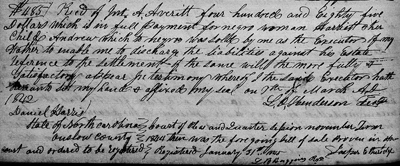 $485. Recd of Jno. A. Averitt four hundred and Eighty five
Dollars which is in full Payment for negro woman Harriet & her
Child Andrew which sd negro was sold by me as the Executor of my
Father to enable me to discharge the liabilities against his Estate
reference to the settlement of the same will the more fully &
Satisfactory appear in testimony whereof I the said Executor hath
hereunto set my hand & affixed my seal on 7th of March A.D.
1842
Daniel
State of North Carolina Court of Pleas and Quarter Session November Term
Onslow County 1842 then was the foregoing bill of sale proven in open
court and ordered to be registered Registered January 3